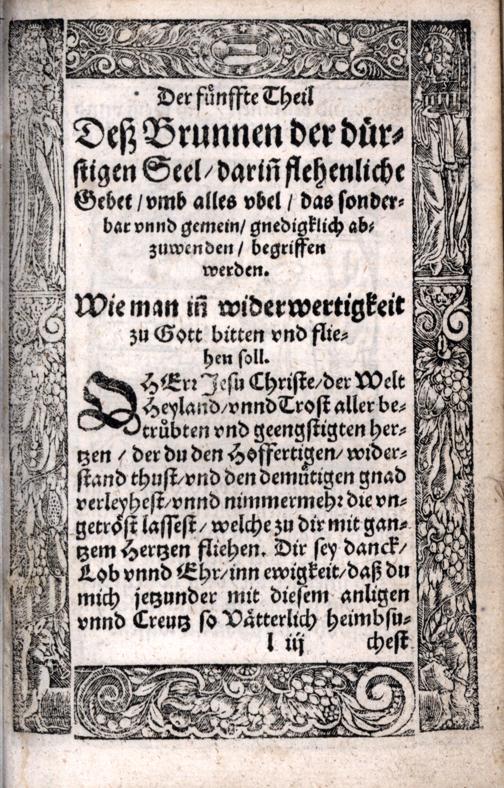 Der fůnffte Theil
Deß Brunnen der dür⸗
stigen Seel/ dariñ flehenliche
Gebet / vmb alles vbel / das sonder⸗
bar vnnd gemein/ gnedigklich ab⸗
zuwenden / begriffen
werden.
Wie man iñ widerwertigkeit
zu Gott bitten vnd flie⸗
hen soll.
O HErr Jesu Christe/ der Welt
Heyland/ vnnd Trost aller be⸗
trůbten vnd geengstigten her⸗
tzen / der du den Hoffertigen/ wider⸗
stand thust/ vnd den demůtigen gnad
verleyhest/ vnnd nimmermehr die vn⸗
getröst lassest/ welche zu dir mit gan⸗
tzem Hertzen fliehen. Dir sey danck/
Lob vnnd Ehr/ inn ewigkeit/ daß du
mich jetzunder mit diesem anligen
vnnd Creutz so Vätterlich heimbsu⸗
l iij chest